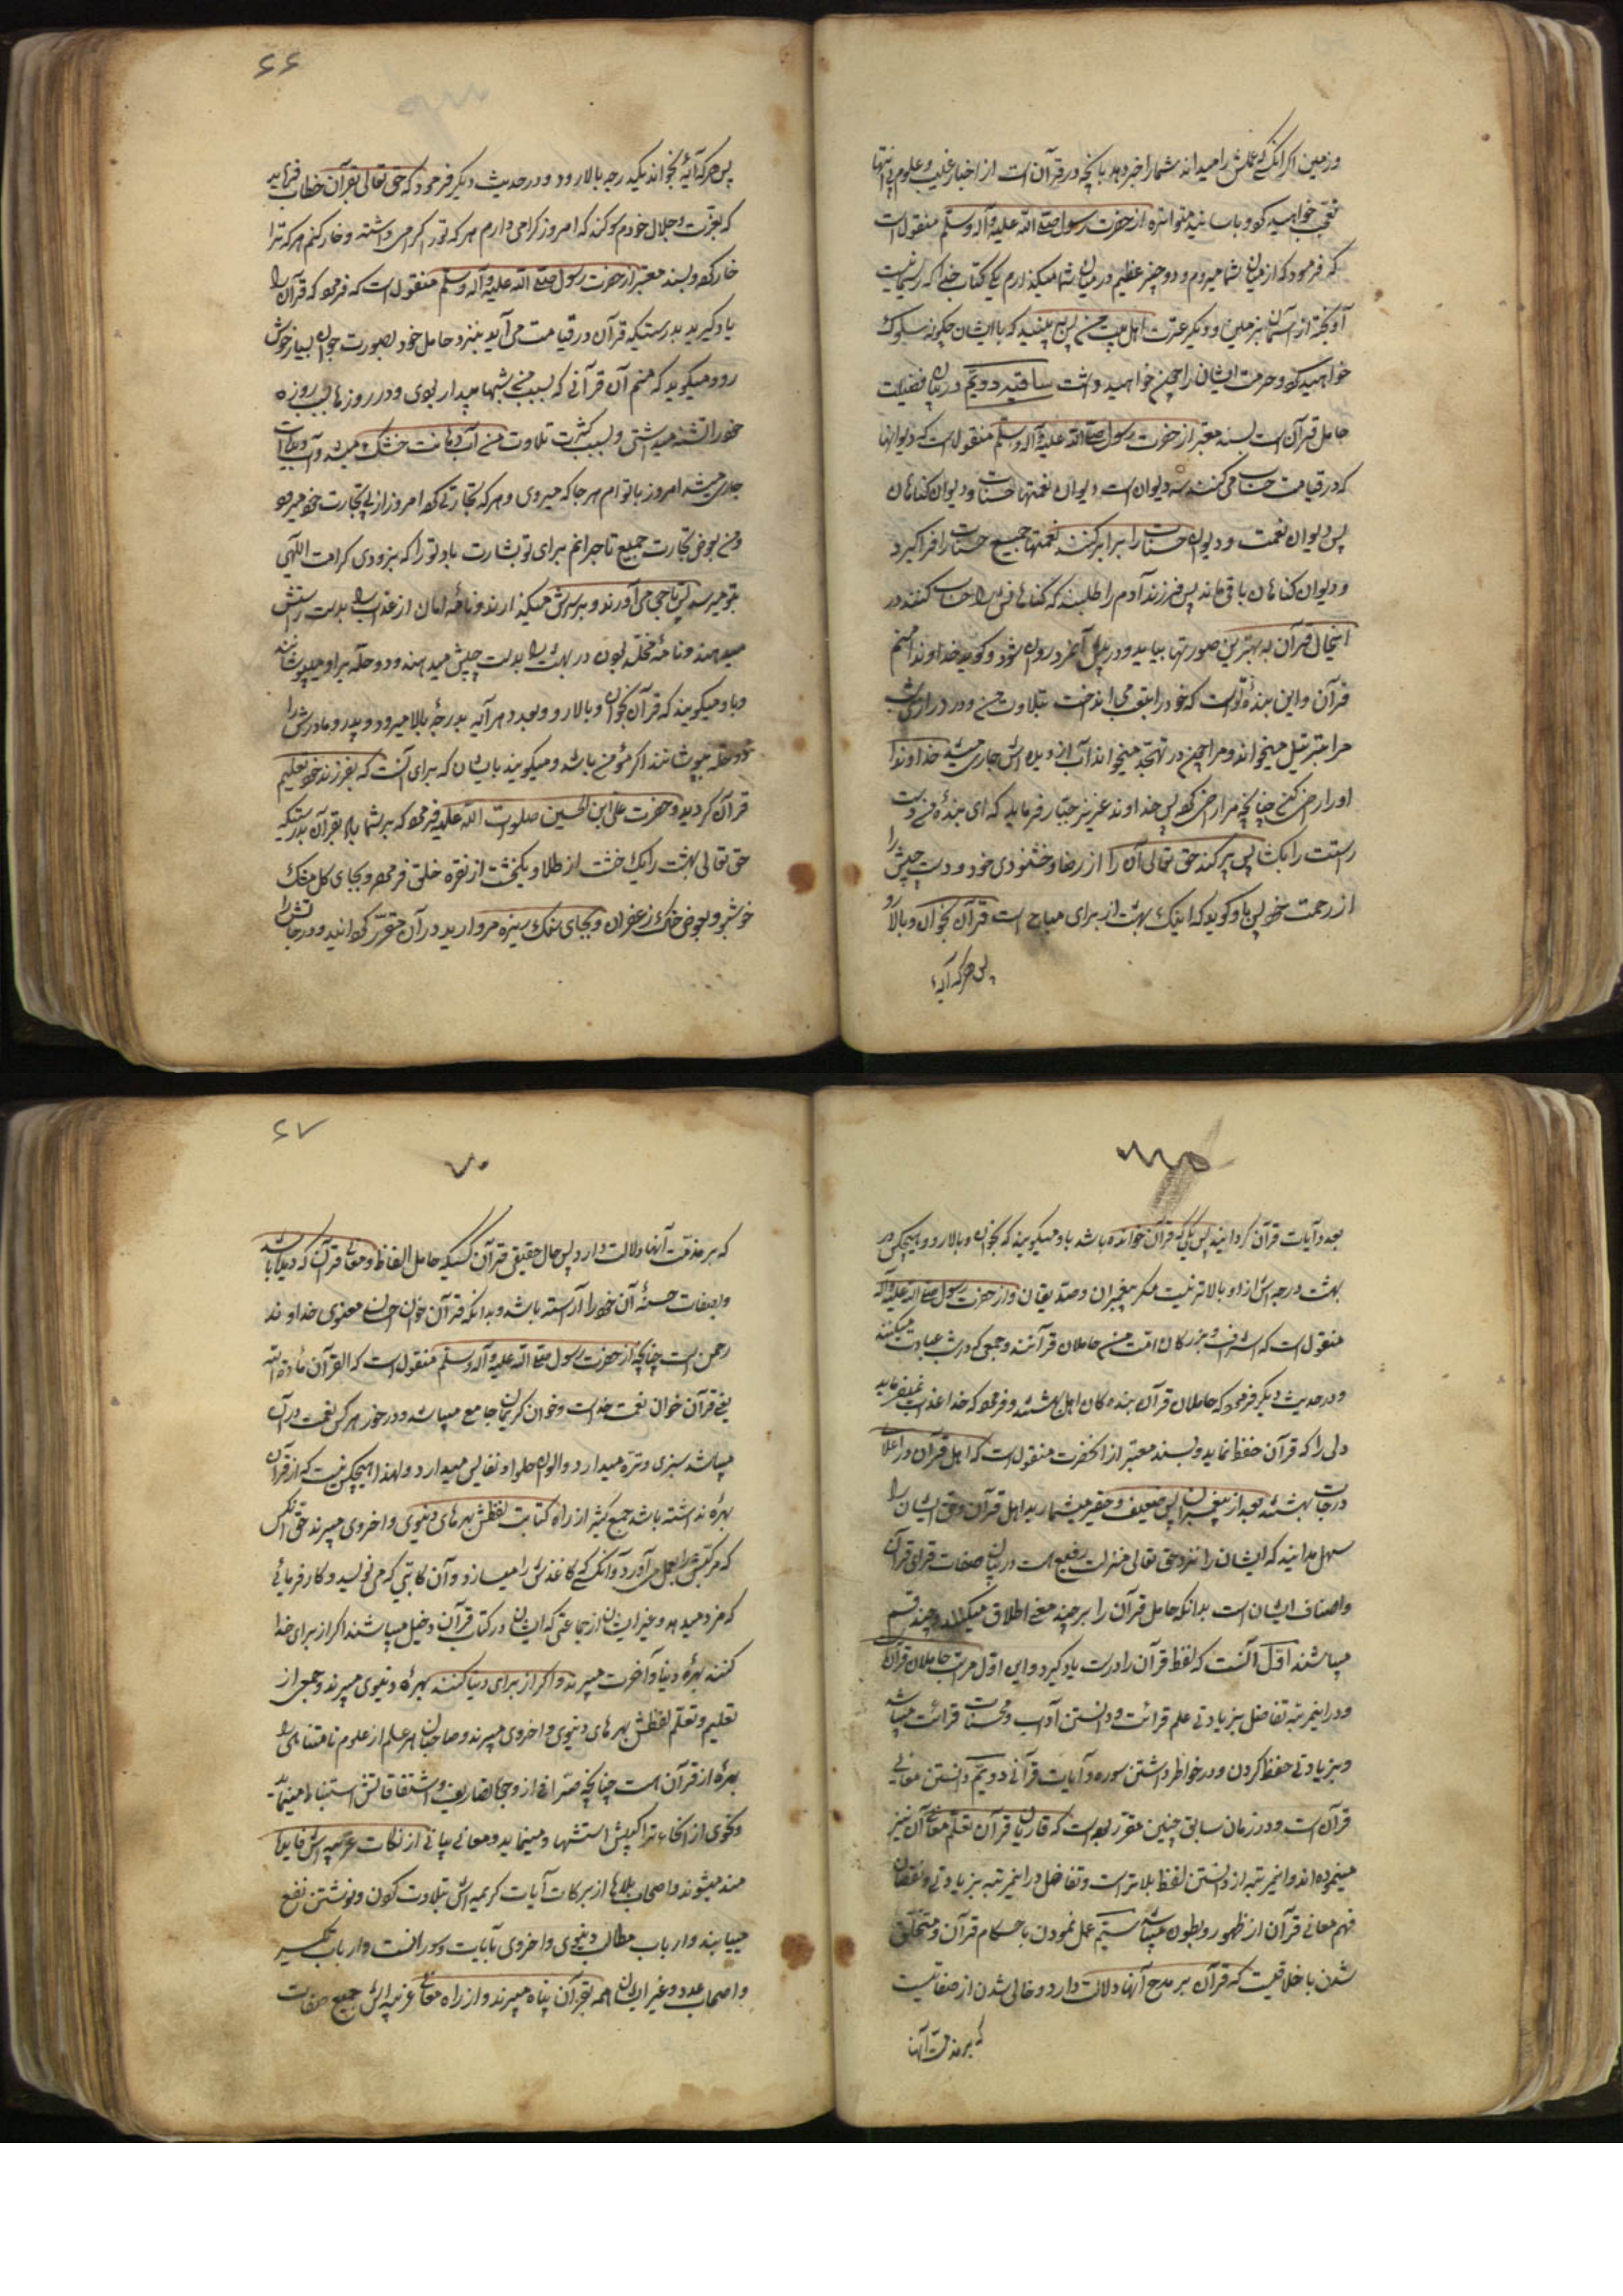 و زمین اگر آنکسی که علمش را میداند شما را خبر دهد بآنچه در قرآن است از اخبار غیب و علوم بی انتها
تعجب خواهید کرد و باسانید متواتره از حضرت رسول صلی الله علیه و آله وسلم منقول است
که فرمود که از میان شما میروم و دو چیز عظیم در میان شما میگذارم یکی کتاب خدا که ریسمانیست
آویخته از آسمان بزمین و دیگر عترت اهل بیت من پس ببینید که با ایشان چگونه سلوک
خواهید کرد و حرمت ایشان را چون خواهید داشت ساقیه دویم در بیان فضیلت
حامل قرآن است بسند معتبر از حضرت رسول صلی الله علیه و آله وسلم منقول است که دیوانها
که در قیامت حساب می کنند سه دیوان است دیوان نعمتها و دیوان حسنات و دیوان گناهان
پس دیوان نعمت و دیوان حسنات را برابر کنند نعمتها جمیع حسنات را فرا گیرد
و دیوان گناهان باقی ماند پس فرزند آدم را طلبند که گناهانش را حساب کنند در
اینحال قرآن به بهترین صورتها بیاید و در پیش آنمرد روان شود و گوید خداوندا منم
قرآن و این بندهٔ تو است که خود را بتعب می انداخت بتلاوت من و در درازی شب
مرا بترتیل میخواند و مرا چون در تهجد میخواند آب از دیده اش جاری میشد خداوندا
او را راضی کن چنانچه مرا راضی کرد پس خداوند عزیز جبار فرماید که ای بندهٔ من دست
راستت را بگشا پس پر کند حق تعالی آن را از رضا و خشنودی خود و دست چپش را
از رحمت خود پس باو گوید که اینک بهشت از برای مباح است قرآن بخوان و بالا رو
پس هر که آیهٔ
۶۶
پس هر که آیهٔ بخواند یکدرجه بالا رود و در حدیث دیگر فرمود که حق تعالی بقرآن خطاب فرماید
که بعزت و جلال خودم سوگند که امروز گرامی دارم هر که تو را گرامی داشته و خار کنم هر که ترا
خار کرده و بسند معتبر از حضرت رسول صلی الله علیه و آله وسلم منقول است که فرمود که قرآن را
یاد گیرید بدرستیکه قرآن در قیامت می آید بنزد حامل خود بصورت جوان بسیار خوش
رو و میگوید که منم آن قرآنی که بسبب من شبها بیدار بودی و در روزها بسبب روزه
خود را تشنه میداشتی و بسبب کثرت تلاوت من آب دهانت خشک میشد و آب دیده ات
جاری میشد امروز با تو ام هر جا که میروی و هر که تجارتی کرد امروز از پی تجارت خود میرود
و من بعوض تجارت جمیع تاجرانم برای تو بشارت باد تو را که بزودی کرامت الهی
بتو میرسد پس تاجی می آورند و بر سرش میگذارند و نامهٔ امان از عذاب را بدست راستش
میدهند و نامهٔ مخلد بودن در بهشت را بدست چپش میدهند و دو حله بر او میپوشانند
و باو میگویند که قرآن بخوان و بالا رو و بعدد هر آیه بدرجهٔ بالا میرود و پدر و مادرش را
دو حله میپوشانند اگر مؤمن باشد و میگویند بایشان که برای آنست که بفرزند خود تعلیم
قرآن کردید و حضرت علی ابن الحسین صلوات الله علیه فرمود که بر شما باد بقرآن بدرستیکه
حق تعالی بهشت را یک خشت از طلا و یکخشت از نقره خلق فرموده و بجای گل مشک
خوشبو و بعوض خاک زعفران و بجای سنگ ریزه مروارید در آن مقرر گردانید و درجاتش را
بعدد آیات قرآن گردانید پس کسی که قرآن خوانده باشد باو میگویند که بخوان و بالا رو و هیچکس در
بهشت درجه اش از او بالاتر نیست مگر پیغمبران و صدیقان و از حضرت رسول صلی الله علیه و آله
منقول است که اشراف و بزرگان امت من حاملان قرآنند و جمعی که در شب عبادت میکنند
و در حدیث دیگر فرمود که حاملان قرآن بنده گان اهل بهشتند و فرمود که خدا عذاب نمیفرماید
دلی را که قرآن حفظ نماید و بسند معتبر از آنحضرت منقول است که اهل قرآن در اعلا
درجات بهشتند بعد از پیغمبران پس ضعیف و حقیر مشمارید اهل قرآن و حق ایشان را
سهل مدانید که ایشان را نزد حق تعالی منزلت رفیع است در بیان صفات قرای قرآن
و اصناف ایشان است بدانکه حامل قرآن را بر چند معنی اطلاق میکنند و چند قسم
میباشند اول آنست که لفظ قرآن را درست یاد گیرد و این اول مراتب حاملان قرآنست
و در اینمرتبه تفاضل بزیادتی علم قرائت و دانستن آداب و محسنات قرائت میباشد
و بزیادتی حفظ کردن و در خواطر داشتن سوره و آیات قرآنی دویم دانستن معانی
قرآن است و در زمان سابق چنین مقرر بوده است که قاریان قرآن تعلم معانی آن نیز
مینموده اند و اینمرتبه از دانستن لفظ بالاتر است و تفاضل در اینمرتبه بزیادتی و نقصان
فهم معانی قرآن از ظهور و بطون میباشد سیم عمل نمودن باحکام قرآن و متخلق
شدن باخلاقیست که قرآن بر مدح آنها دلالت دارد و خالی شدن از صفاتیست
که بر مذمت آنها
۶۷
۷۰
که بر مذمت آنها دلالت دارد پس حامل حقیقی قرآن کسیکه حامل الفاظ و معانی قرآن گردیده باشد
و بصفات حسنهٔ آن خود را آراسته باشد و بدانکه قرآن خوان احسان معنوی خداوند
رحمن است چنانچه از حضرت رسول صلی الله علیه و آله وسلم منقول است که القرآن مأدبة الله
یعنی قرآن خوان نعمت خداست و خوان کریمان جامع میباشد و در خور هر کس نعمت در آن
میباشد سبزی و تره میدارد و الوان حلوا و نفایس میدارد و لهذا هیچکس نیست که از قرآن
بهره نداشته باشد جمع کثیر از راه کتابت لفظش بهرهای دنیوی و اخروی میبرند حتی آنکس
که مرکبش را بعمل می آورد و آنکسی که کاغذش را میسازد و آن کاتبی که می نویسد و کارفرمائی
که مزد میدهد و غیر ایشان از جماعتی که ایشان در کتاب قرآن دخیل میباشند اگر از برای خدا
کنند بهرهٔ دنیا و آخرت میبرند و اگر از برای دنیا کنند بهرهٔ دنیوی میبرند و جمعی از
تعلیم و تعلم لفظش بهرهای دنیوی و اخروی میبرند و صاحبان هر علم از علوم نامتناهی را
بهره از قرآن است چنانچه صرفی از وجوه تصاریف و اشتقاقاتش استنباط مینماید
و نحوی از انحاء تراکیبش استشهاد مینماید و معانی بیانی از نکات غریبه اش فایده
مند میشوند و اصحاب بلاها از برکات آیات کریمه اش بتلاوت کردن و نوشتن نفع
مییابند و ارباب مطالب دنیوی و اخروی بآیات و سور و ارباب تکسیر
و اصحاب عدد و غیر ایشان همه بقرآن پناه میبرند و از راه معانی غریبه اش جمیع صفات